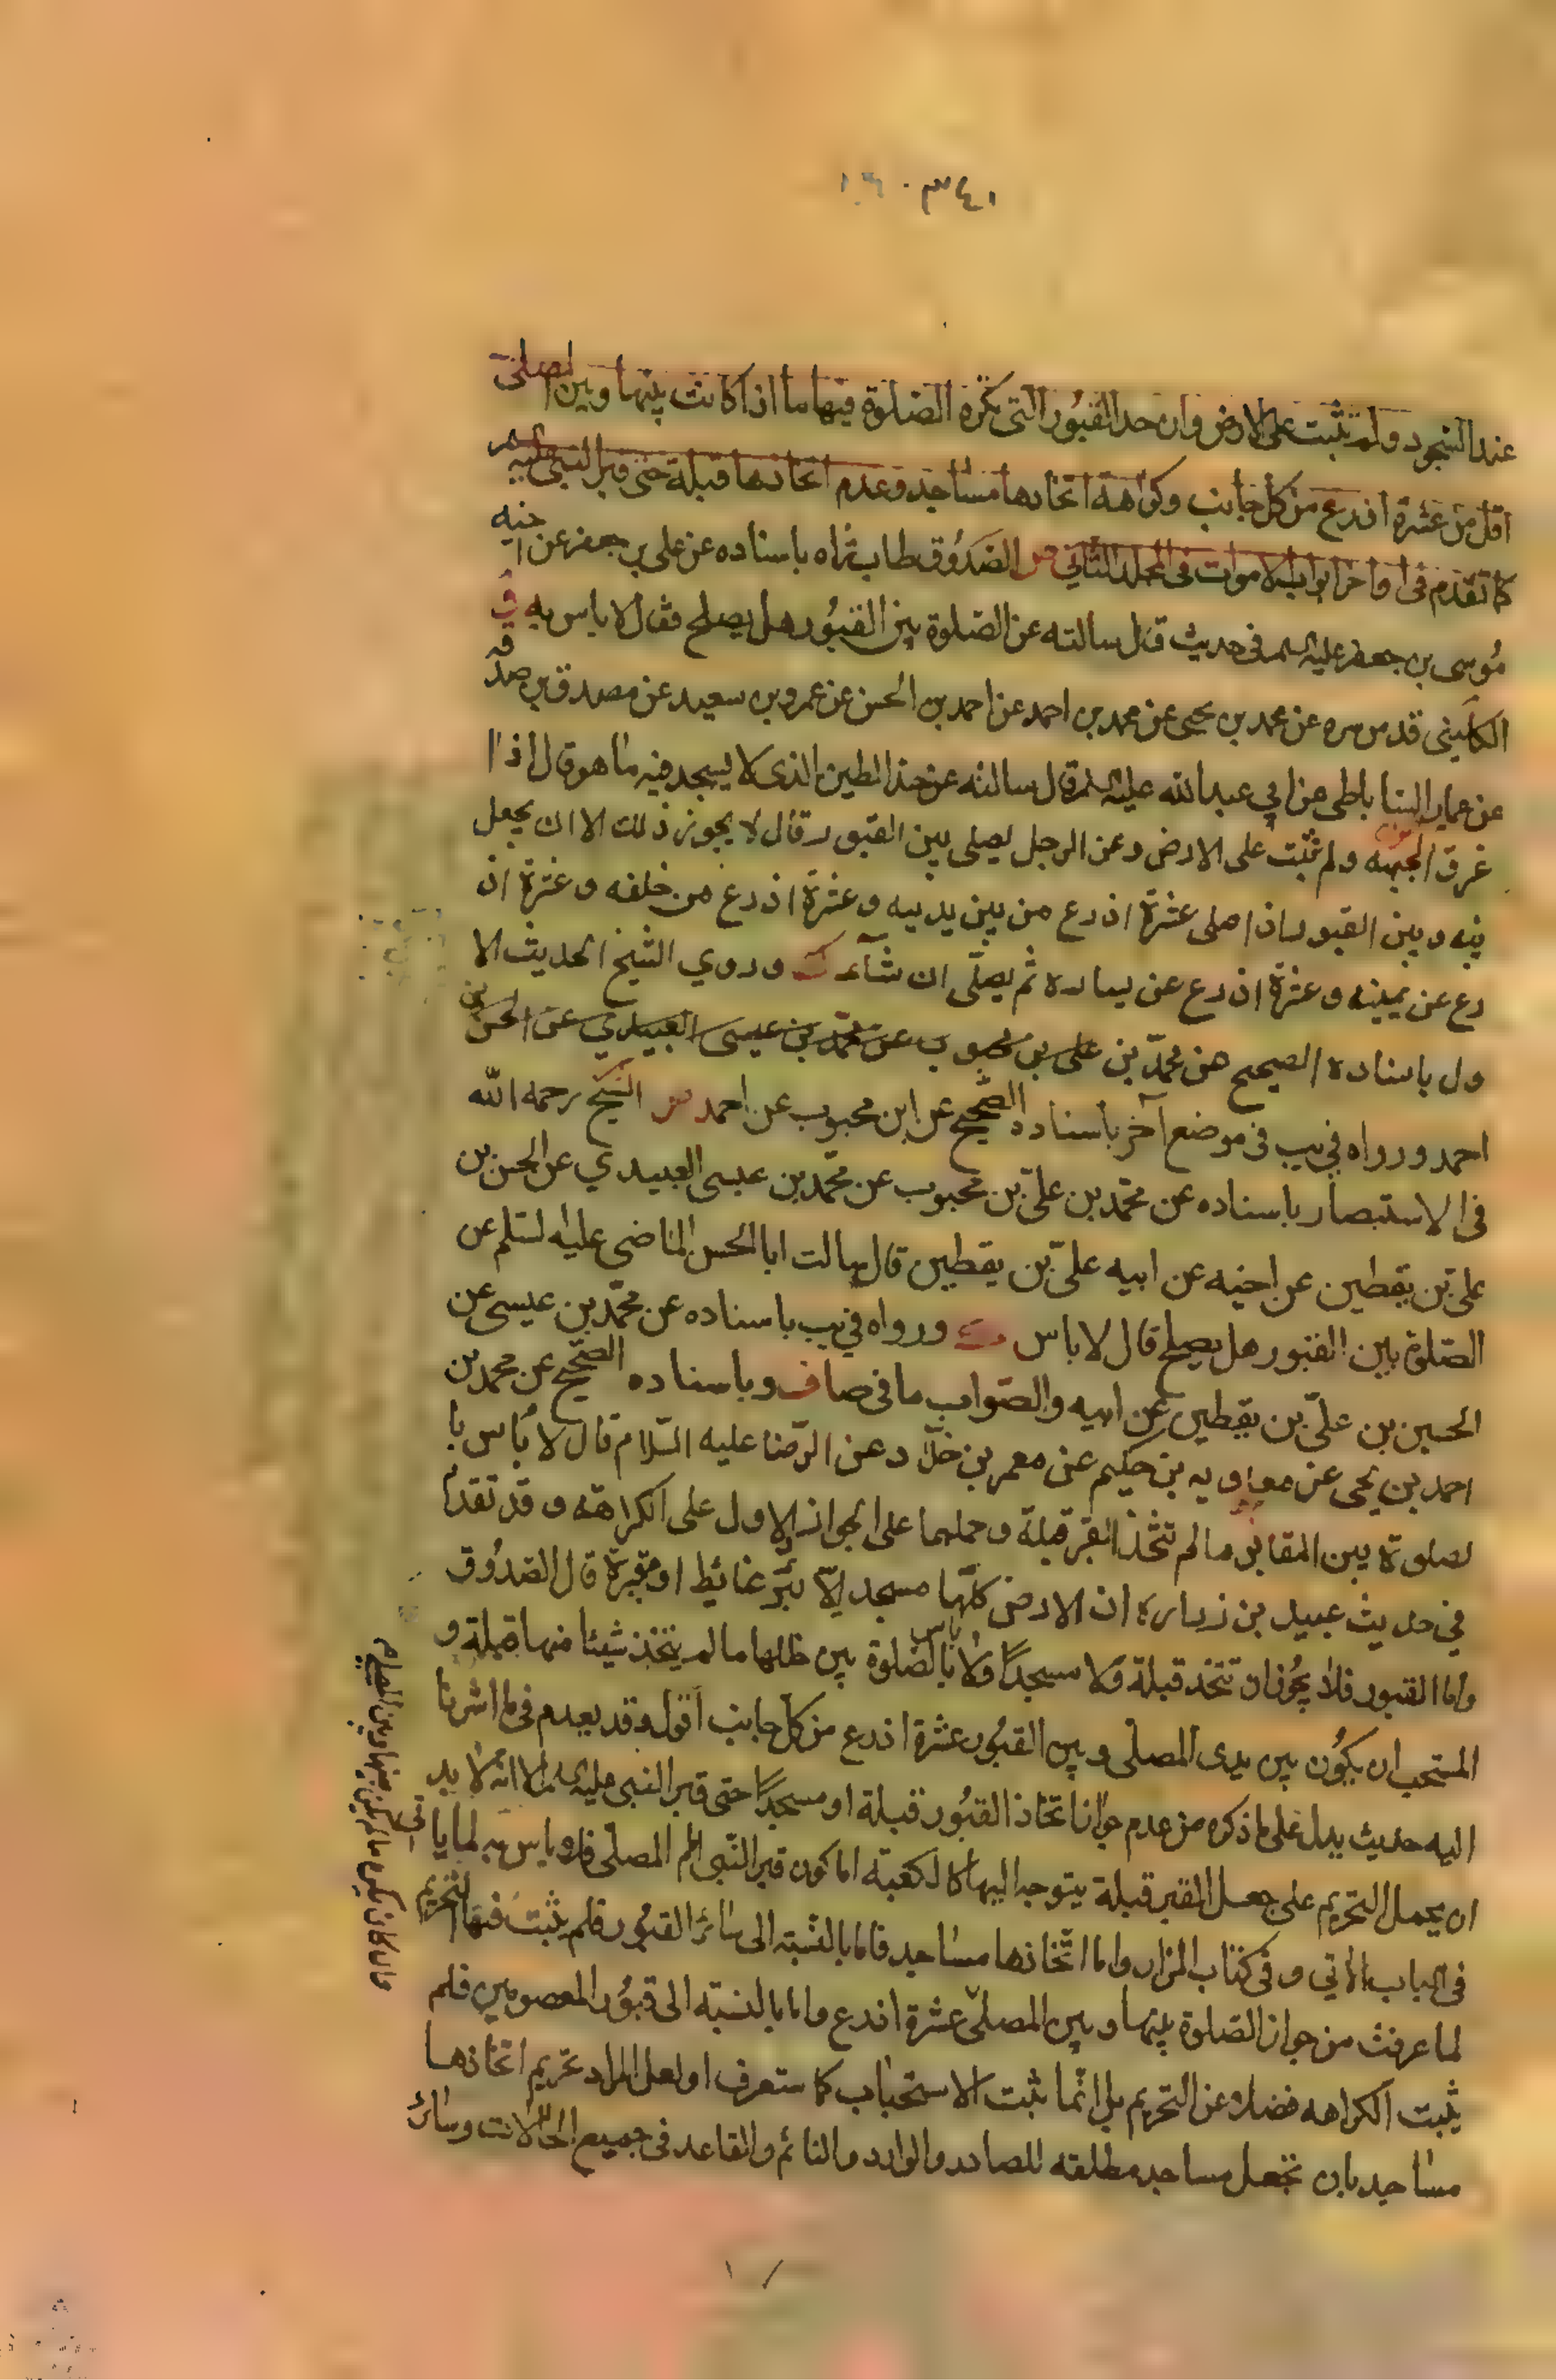 ٣٤١
عند السجود ولم تثبت على الارض وان حد القبور التى تكره الصلوة فيها ما اذا كانت بينها وبين المصلى
اقل من عشرة اذرع من كل جانب وكراهة اتخاذها مساجد وعدم اتخاذها قبلة حتى قبر النبى عليه السلم
كما تقدم فى اواخر ابواب الاموات فى المجلد الثانى الصدوق طاب ثراه باسناده عن على بن جعفر عن اخيه
موسى بن جعفر عليه السلم فى حديث قال سالته عن الصلوة بين القبور هل يصلح فقال لا باس به
الكلينى قدس سره عن محمد بن يحيى عن محمد بن احمد عن احمد بن الحسن عن عمرو بن سعيد عن مصدق بن صدقه
عن عمار الساباطى عن ابي عبد الله عليه السلم قال سالته عن حد الطين الذى لا يسجد فيه ما هو قال اذا
غرق الجبهه ولم تثبت على الارض وعن الرجل يصلى بين القبور قال لا يجوز ذلك الا ان يجعل
بينه وبين القبور اذا صلى عشرة اذرع من بين يديه وعشرة اذرع من خلفه وعشرة اذ
رع عن يمينه وعشرة اذرع عن يساره ثم يصلى ان شآء وروي الشيخ الحديث الا
ول باسناده الصحيح عن محمد بن على بن محبوب عن محمد بن عيسى العبيدي عن الحسن بن
احمد ورواه في يب فى موضع آخر باسناده الصحيح عن ابن محبوب عن احمد الشيخ رحمه الله
فى الاستبصار باسناده عن محمد بن على بن محبوب عن محمد بن عيسى العبيدي عن الحسن بن
على بن يقطين عن اخيه عن ابيه على بن يقطين قال سالت ابا الحسن الماضى عليه السلم عن
الصلوة بين القبور هل يصلح قال لا باس ورواه في يب باسناده عن محمد بن عيسى عن
الحسين بن على بن يقطين عن ابيه والصواب ما فى صاف وباسناده الصحيح عن محمد بن
احمد بن يحيى عن معاويه بن حكيم عن معمر بن خلاد عن الرضا عليه السلام قال لا بأس با
لصلوة بين المقابر ما لم تتخذ القبر قبلة وحملهما على الجواز والاول على الكراهة وقد تقدم
في حديث عبيد بن زراره ان الارض كلها مسجد الا بئر غائط او مقبرة قال الصدوق
واما القبور فلا يجوز ان تتخذ قبلة ولا مسجدا ولا باس بالصلوة بين خللها ما لم يتخذ شيئا منها قبلة و
المستحب ان يكون بين يدى المصلى وبين القبور عشرة اذرع من كل جانب اقول وقد تقدم في ما اشرنا
اليه حديث يدل على ما ذكره من عدم جواز اتخاذ القبور قبلة او مسجدا حتى قبر النبى عليه السلم الا انه لا بد
ان يحمل التحريم على جعل القبر قبلة يتوجه اليها كالكعبة اما كون قبر النبى امام المصلى فلا باس به لما ياتى
فى الباب الاتي وفى كتاب المزار واما اتخاذها مساجد فاما بالنسبة الى سائر القبور فلم يثبت فيها التحريم
لما عرفت من جواز الصلوة بينها وبين المصلى عشرة اذرع واما بالنسبة الى قبور المعصومين فلم
يثبت الكراهه فضلا عن التحريم بل انما يثبت الاستحباب كما ستعرف او لعل المراد تحريم اتخاذها
مساجد بان تجعل مساجد مطلقه للصادر والوارد والنائم والقاعد فى جميع الحالات وسائر